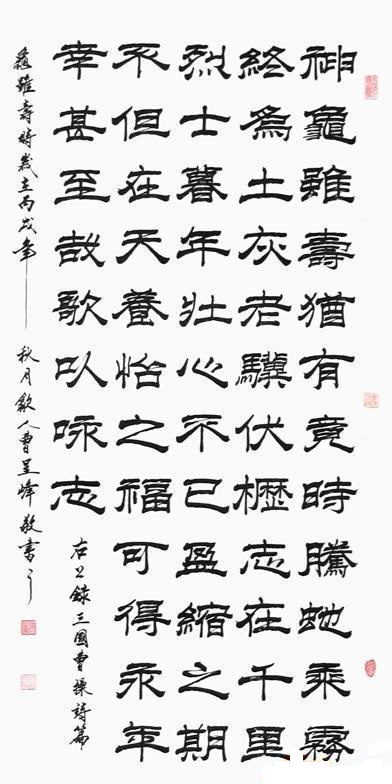 神龜雖壽猶有竟時騰虵乘霧
終為土灰老驥伏櫪志在千里
烈士暮年壯心不已盈縮之期
不但在天養怡之福可得永年
幸甚至哉歌以咏志
右上錄三國曹操詩篇
龜雖壽時歲在丙戌年秋月歙人曹呈峰敬書